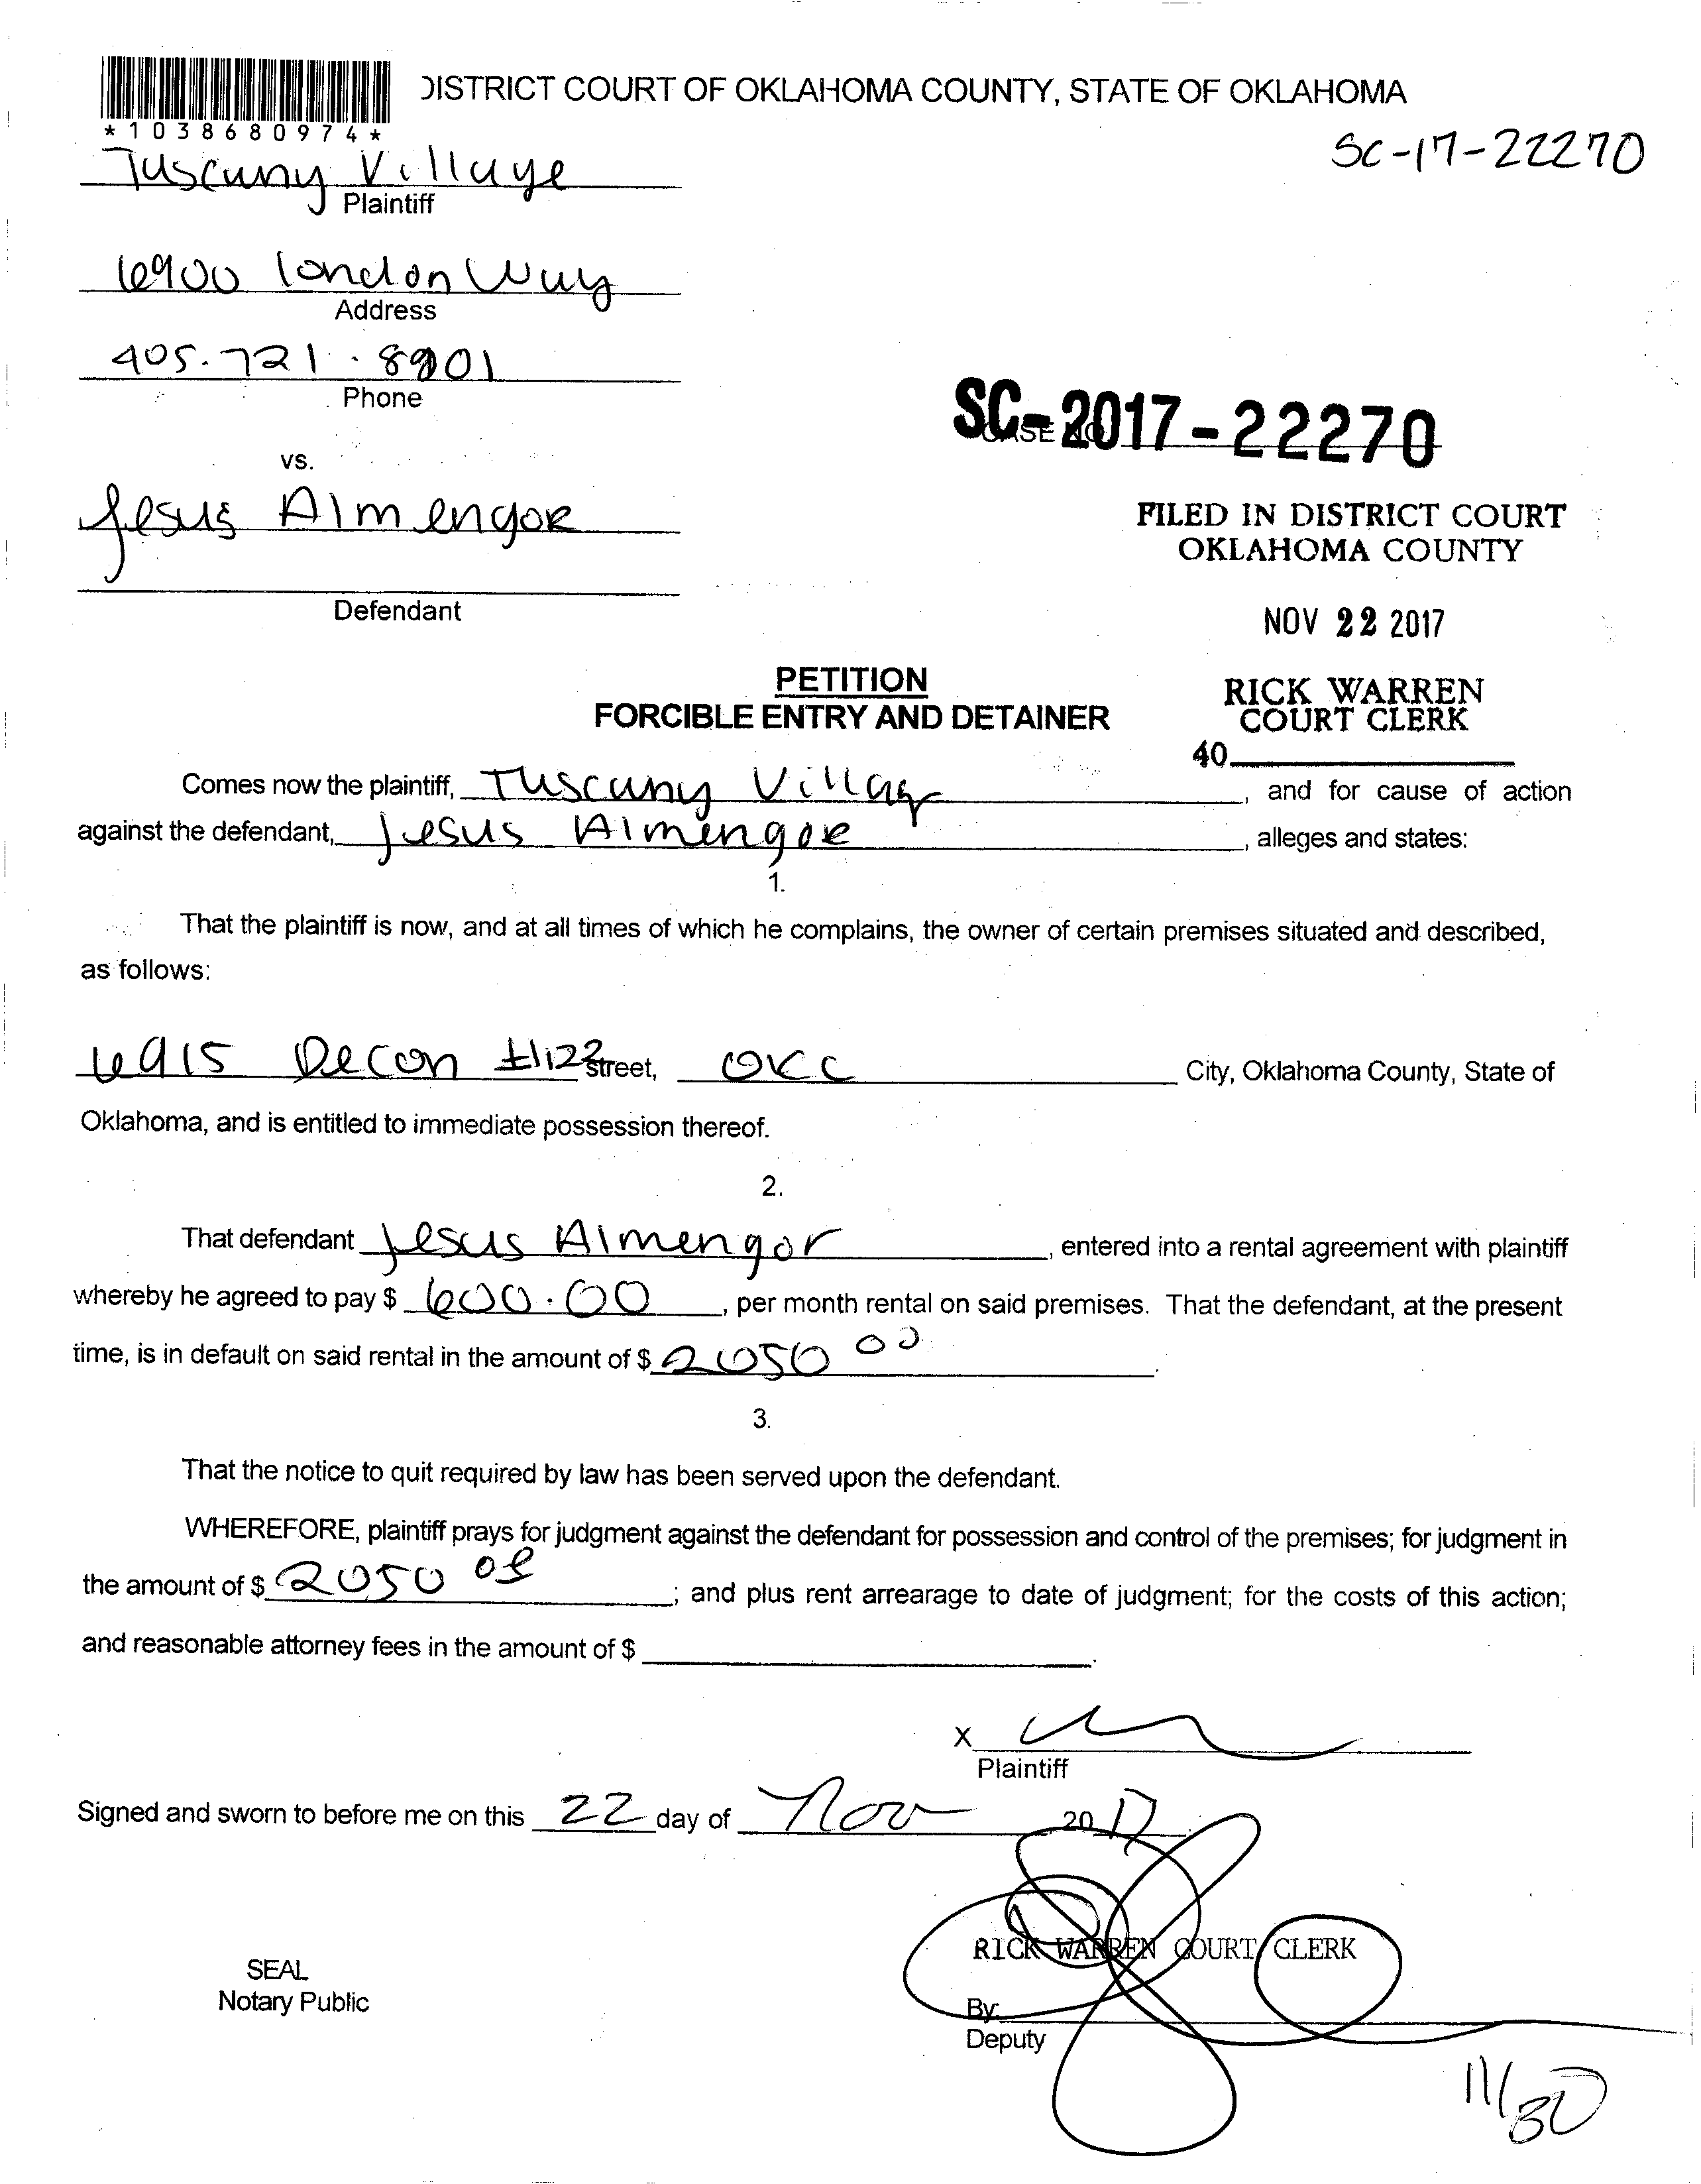 DISTRICT COURT OF OKLAHOMA COUNTY, STATE OF OKLAHOMA
*1038680974*
SC-17-22270
Tuscany Village
Plaintiff
6900 London Way
Address
405.721.8901
Phone
SC-2017-22270
CASE NO
vs.
Jesus Almengor
Defendant
FILED IN DISTRICT COURT
OKLAHOMA COUNTY
NOV 22 2017
RICK WARREN
COURT CLERK
40
PETITION
FORCIBLE ENTRY AND DETAINER
Comes now the plaintiff, Tuscany Village, and for cause of action
against the defendant, Jesus Almengor, alleges and states:
1.
That the plaintiff is now, and at all times of which he complains, the owner of certain premises situated and described,
as follows:
6915 Decon #1122 Street, OKC City, Oklahoma County, State of
Oklahoma, and is entitled to immediate possession thereof.
2.
That defendant Jesus Almengor, entered into a rental agreement with plaintiff
whereby he agreed to pay $ 600.00, per month rental on said premises. That the defendant, at the present
time, is in default on said rental in the amount of $ 2050 00.
3.
That the notice to quit required by law has been served upon the defendant.
WHEREFORE, plaintiff prays for judgment against the defendant for possession and control of the premises; for judgment in
the amount of $ 2050 00; and plus rent arrearage to date of judgment; for the costs of this action;
and reasonable attorney fees in the amount of $ .
X
Plaintiff
Signed and sworn to before me on this 22 day of Nov 2017
RICK WARREN COURT CLERK
SEAL
Notary Public
By:
Deputy
11/30